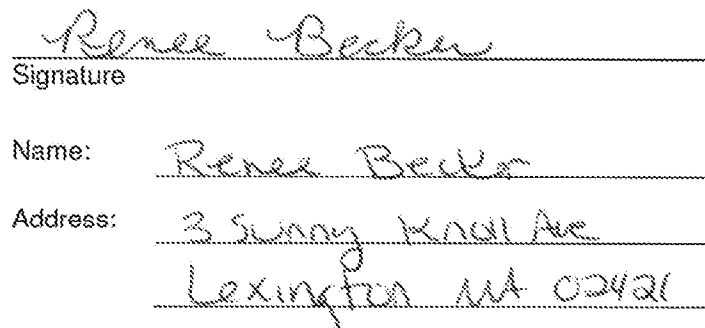 Renee Becker
Signature
Name: Renee Becker
Address: 3 Sunny Knoll Ave
Lexington MA 02421